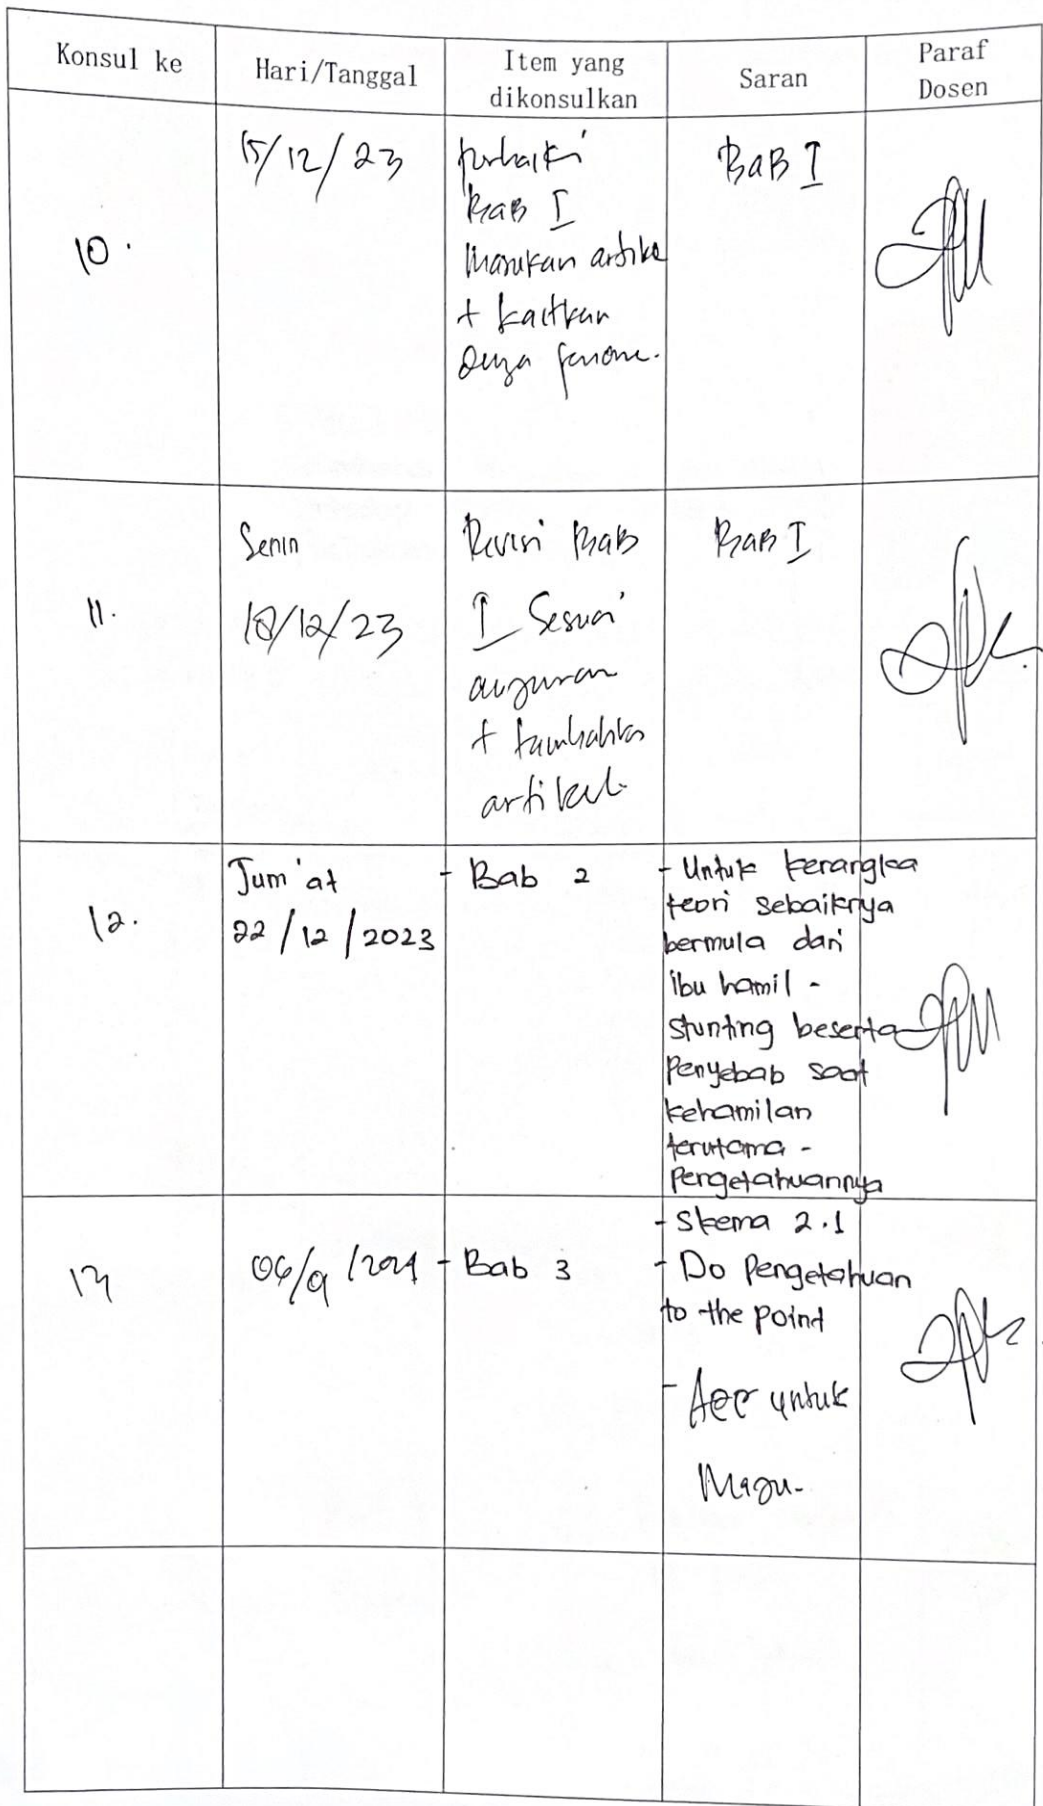 Konsul ke
Hari/Tanggal
Item yang
dikonsulkan
Saran
Paraf
Dosen
10.
15/12/23
perbaiki
BAB I
Masukan artike
+ kaitkan
fenome.
BAB I
11.
Senin
18/12/23
Revisi BAB
I Sesuai
anjuran
+ tambahkan
artikel.
BAB I
12.
Jum'at
22/12/2023
- Bab 2
- Untuk kerangka
teori sebaiknya
bermula dari
ibu hamil -
stunting beserta
Penyebab saat
kehamilan
terutama -
Pengetahuannya
13
- Bab 3
- Skema 2.1
- Do Pengetahuan
to the point
- Acc untuk
Maju.